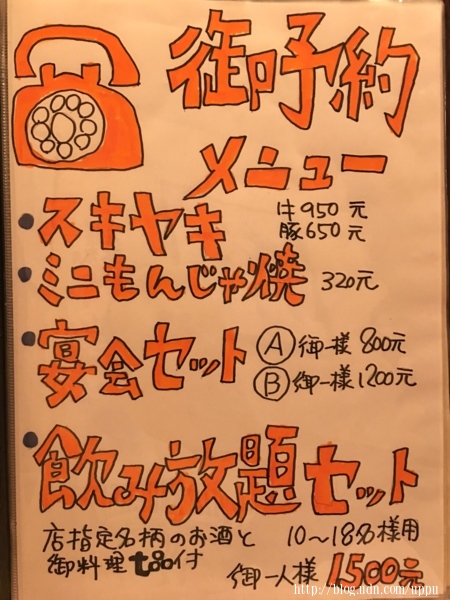 御予約
メニュー
スキヤキ 牛950元
豚650元
ミニもんじゃ焼 320元
宴会セット Ⓐ御一様 800元
Ⓑ御一様 1200元
飲み放題セット
店指定名柄のお酒と 10〜18名様用
御料理七品付 御一人様 1500元
http://blog.udn.com/uppu